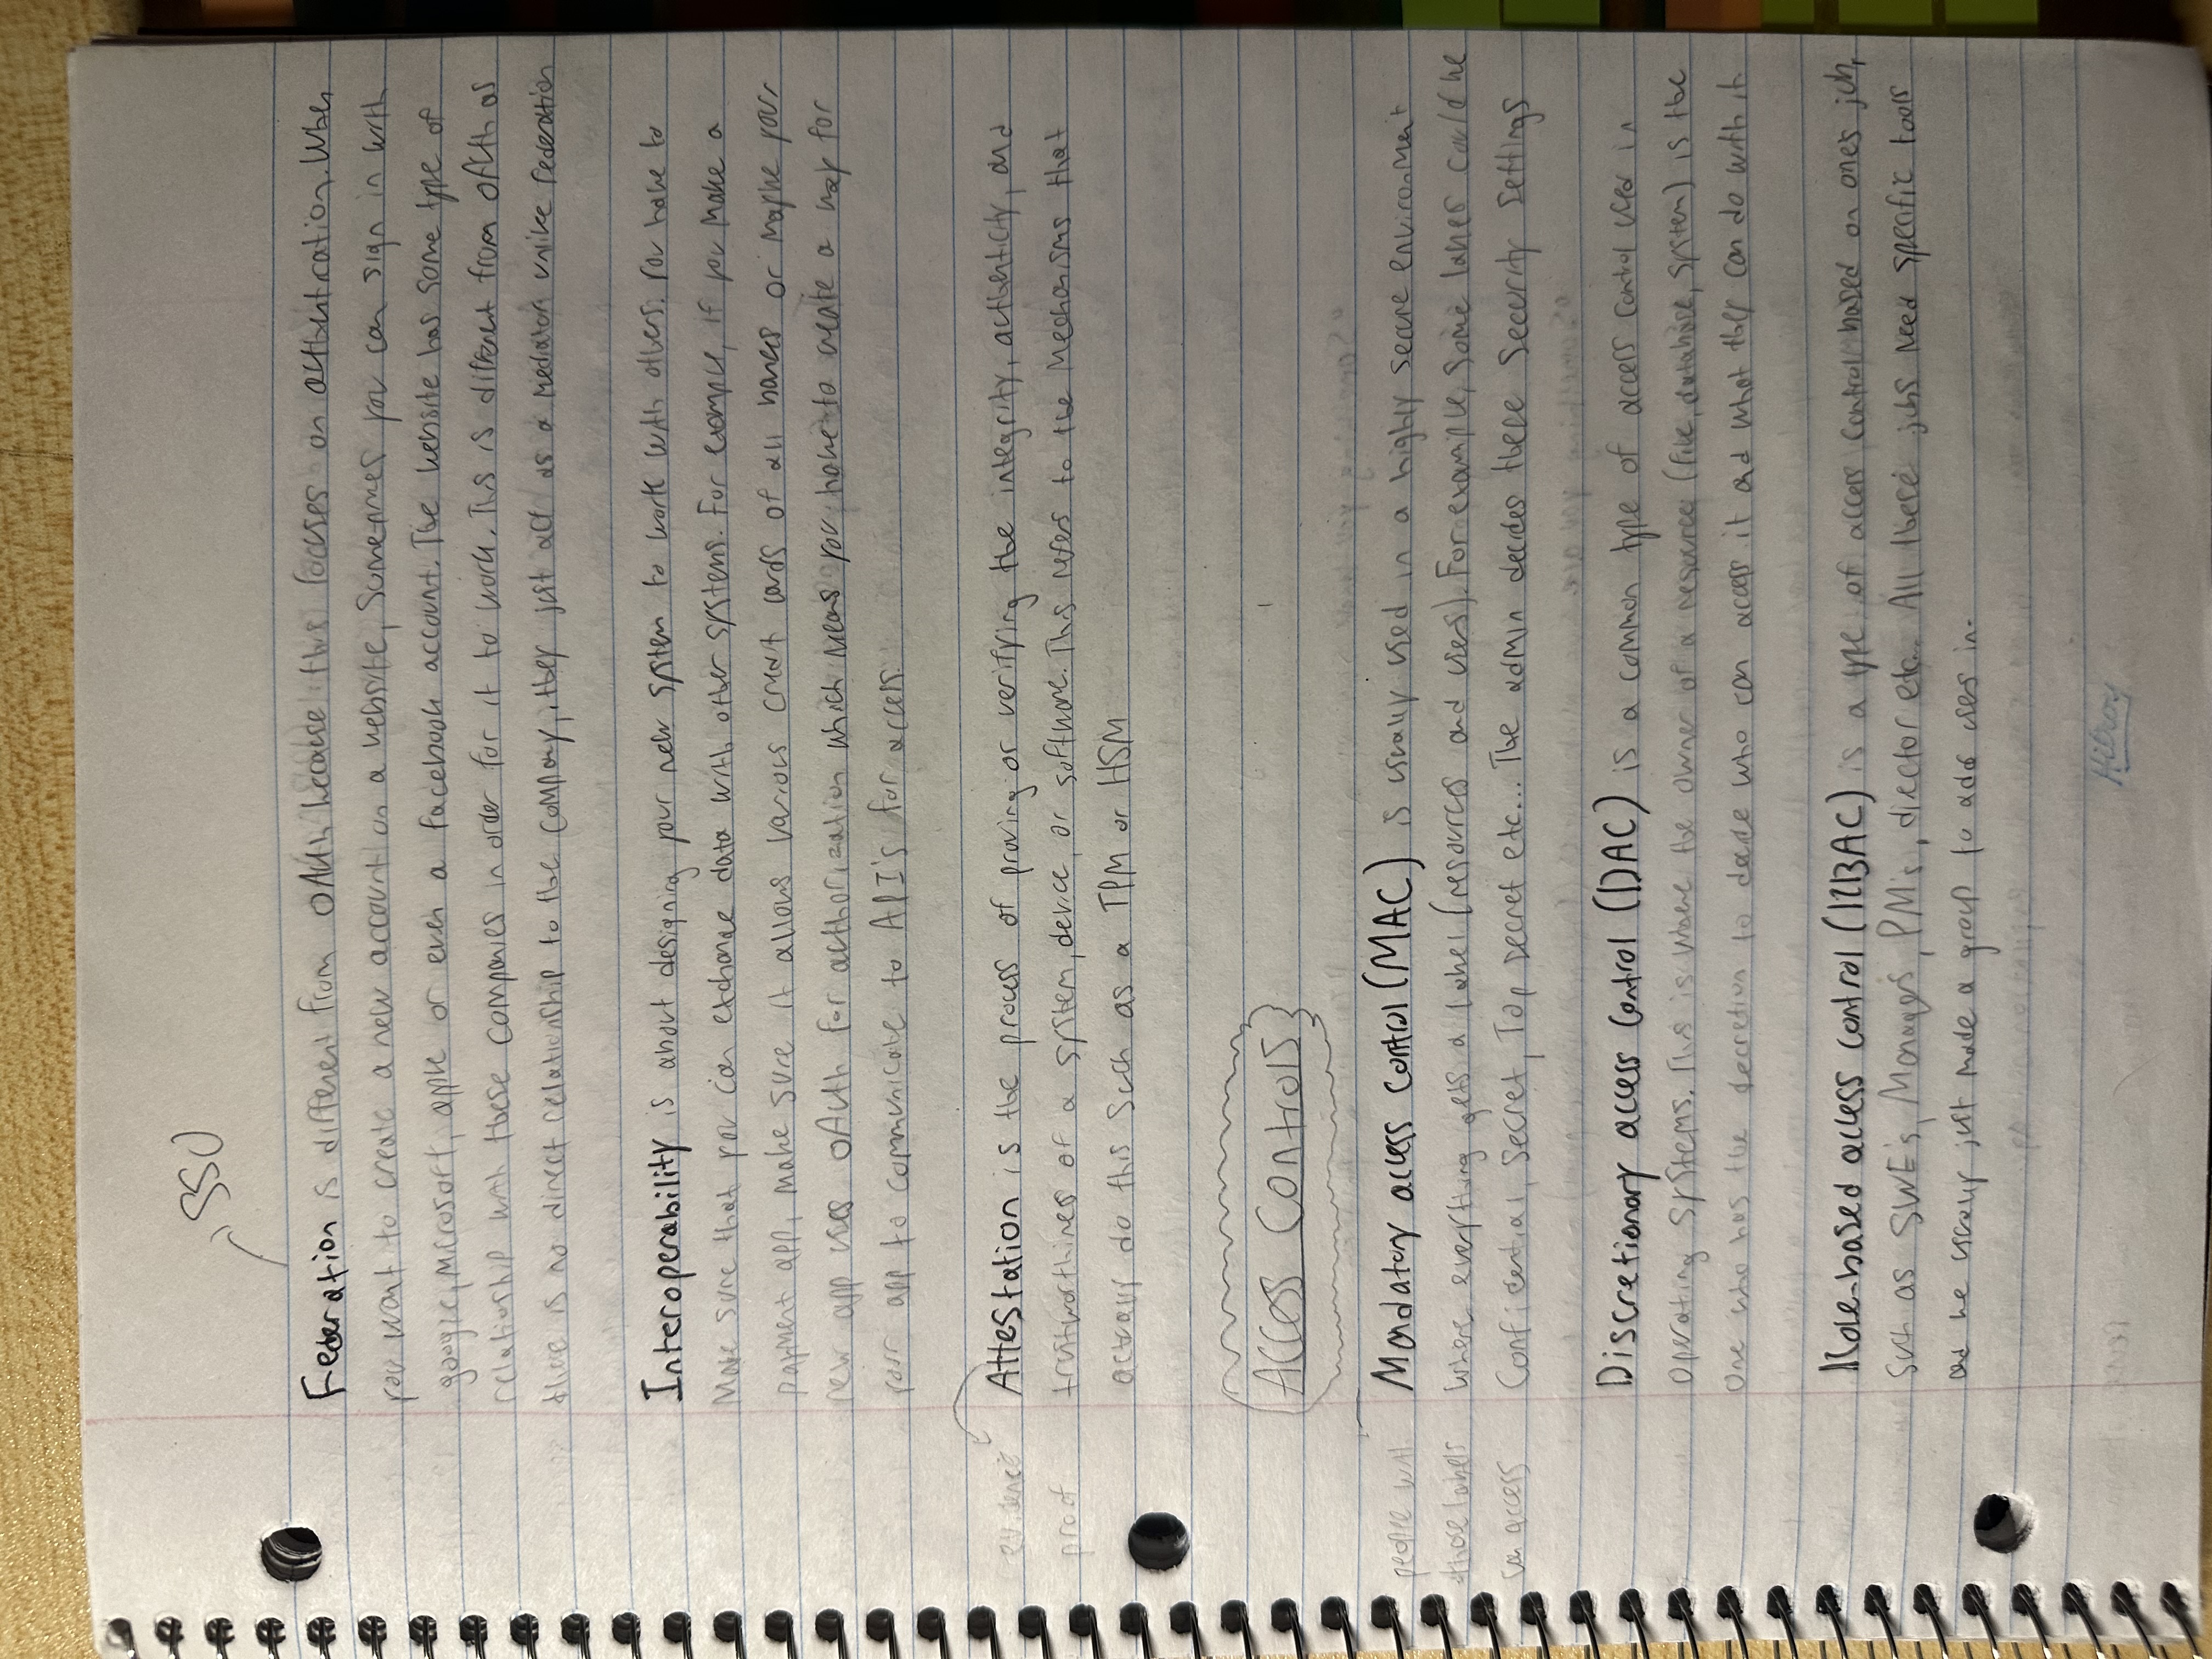 SSO
Federation is different from OAuth because this focuses on authentication. When
you want to create a new account on a website, sometimes you can sign in with
google, microsoft, apple or even a facebook account. The website has some type of
relatiouship with these companies in order for it to work. This is different from OAuth as
there is no direct relationship to the company, they just act as a mediator unlike federation
Interoperability is about designing your new system to work with others. You have to
Make sure that you can exchange data with other systems. For example, if you make a
payment app, make sure it allows various credit cards of all banks or maybe your
new app uses OAuth for authorization which means you have to create a way for
your app to communicate to API's for access.
evidence
proof
Attestation is the process of proving or verifying the integrity, authenticity, and
trustworthiness of a system, device, or software. This refers to the mechanisms that
actually do this such as a TPM or HSM
Access Controls
people with
those labels
can access
Mandatory access control (MAC) is usually used in a highly secure environment
where everything gets a label (resources and users). For example, some labels could be
Confidential, Secret, Top secret etc... The admin decides these security settings
Discretionary access control (DAC) is a common type of access control used in
operating systems. This is where the owner of a resource (file, database, system) is the
one who has the decretion to decide who can access it and what they can do with it
Role-based access control (RBAC) is a type of access control based on one's job,
such as SWE's, Managers, PM's, director etc... All these jobs need specific tools
and we usually just made a group to add users in.
Hilroy